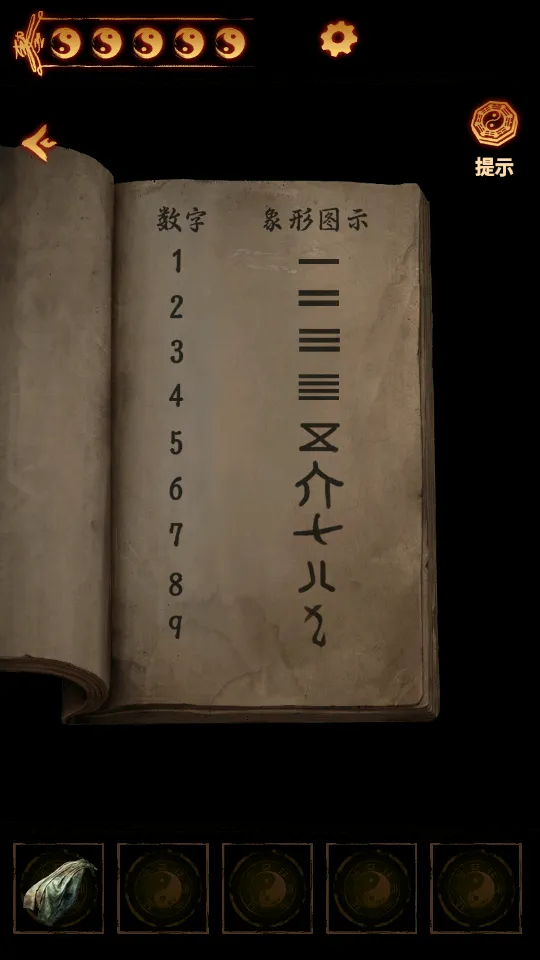 提示
数字 象形图示
1 一
2 二
3 三
4 亖
5
6
7
8
9